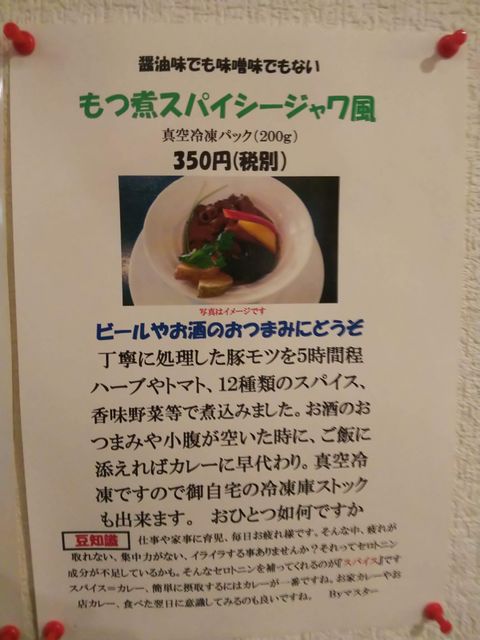 醤油味でも味噌味でもない
もつ煮スパイシージャワ風
真空冷凍パック(200g)
350円(税別)
写真はイメージです
ビールやお酒のおつまみにどうぞ
丁寧に処理した豚モツを5時間程
ハーブやトマト、12種類のスパイス、
香味野菜等で煮込みました。お酒のお
つまみや小腹が空いた時に、ご飯に
添えればカレーに早代わり。真空冷
凍ですので御自宅の冷凍庫ストック
も出来ます。 おひとつ如何ですか
豆知識 仕事や家事に育児、毎日お疲れ様です。そんな中、疲れが
取れない、集中力がない、イライラする事ありませんか?それってセロトニン
成分が不足しているかも。そんなセロトニンを補ってくれるのが『スパイス』です
スパイス=カレー、簡単に摂取するにはカレーが一番ですね。お家カレーやお
店カレー、食べた翌日に意識してみるのも良いですね。 Byマスター